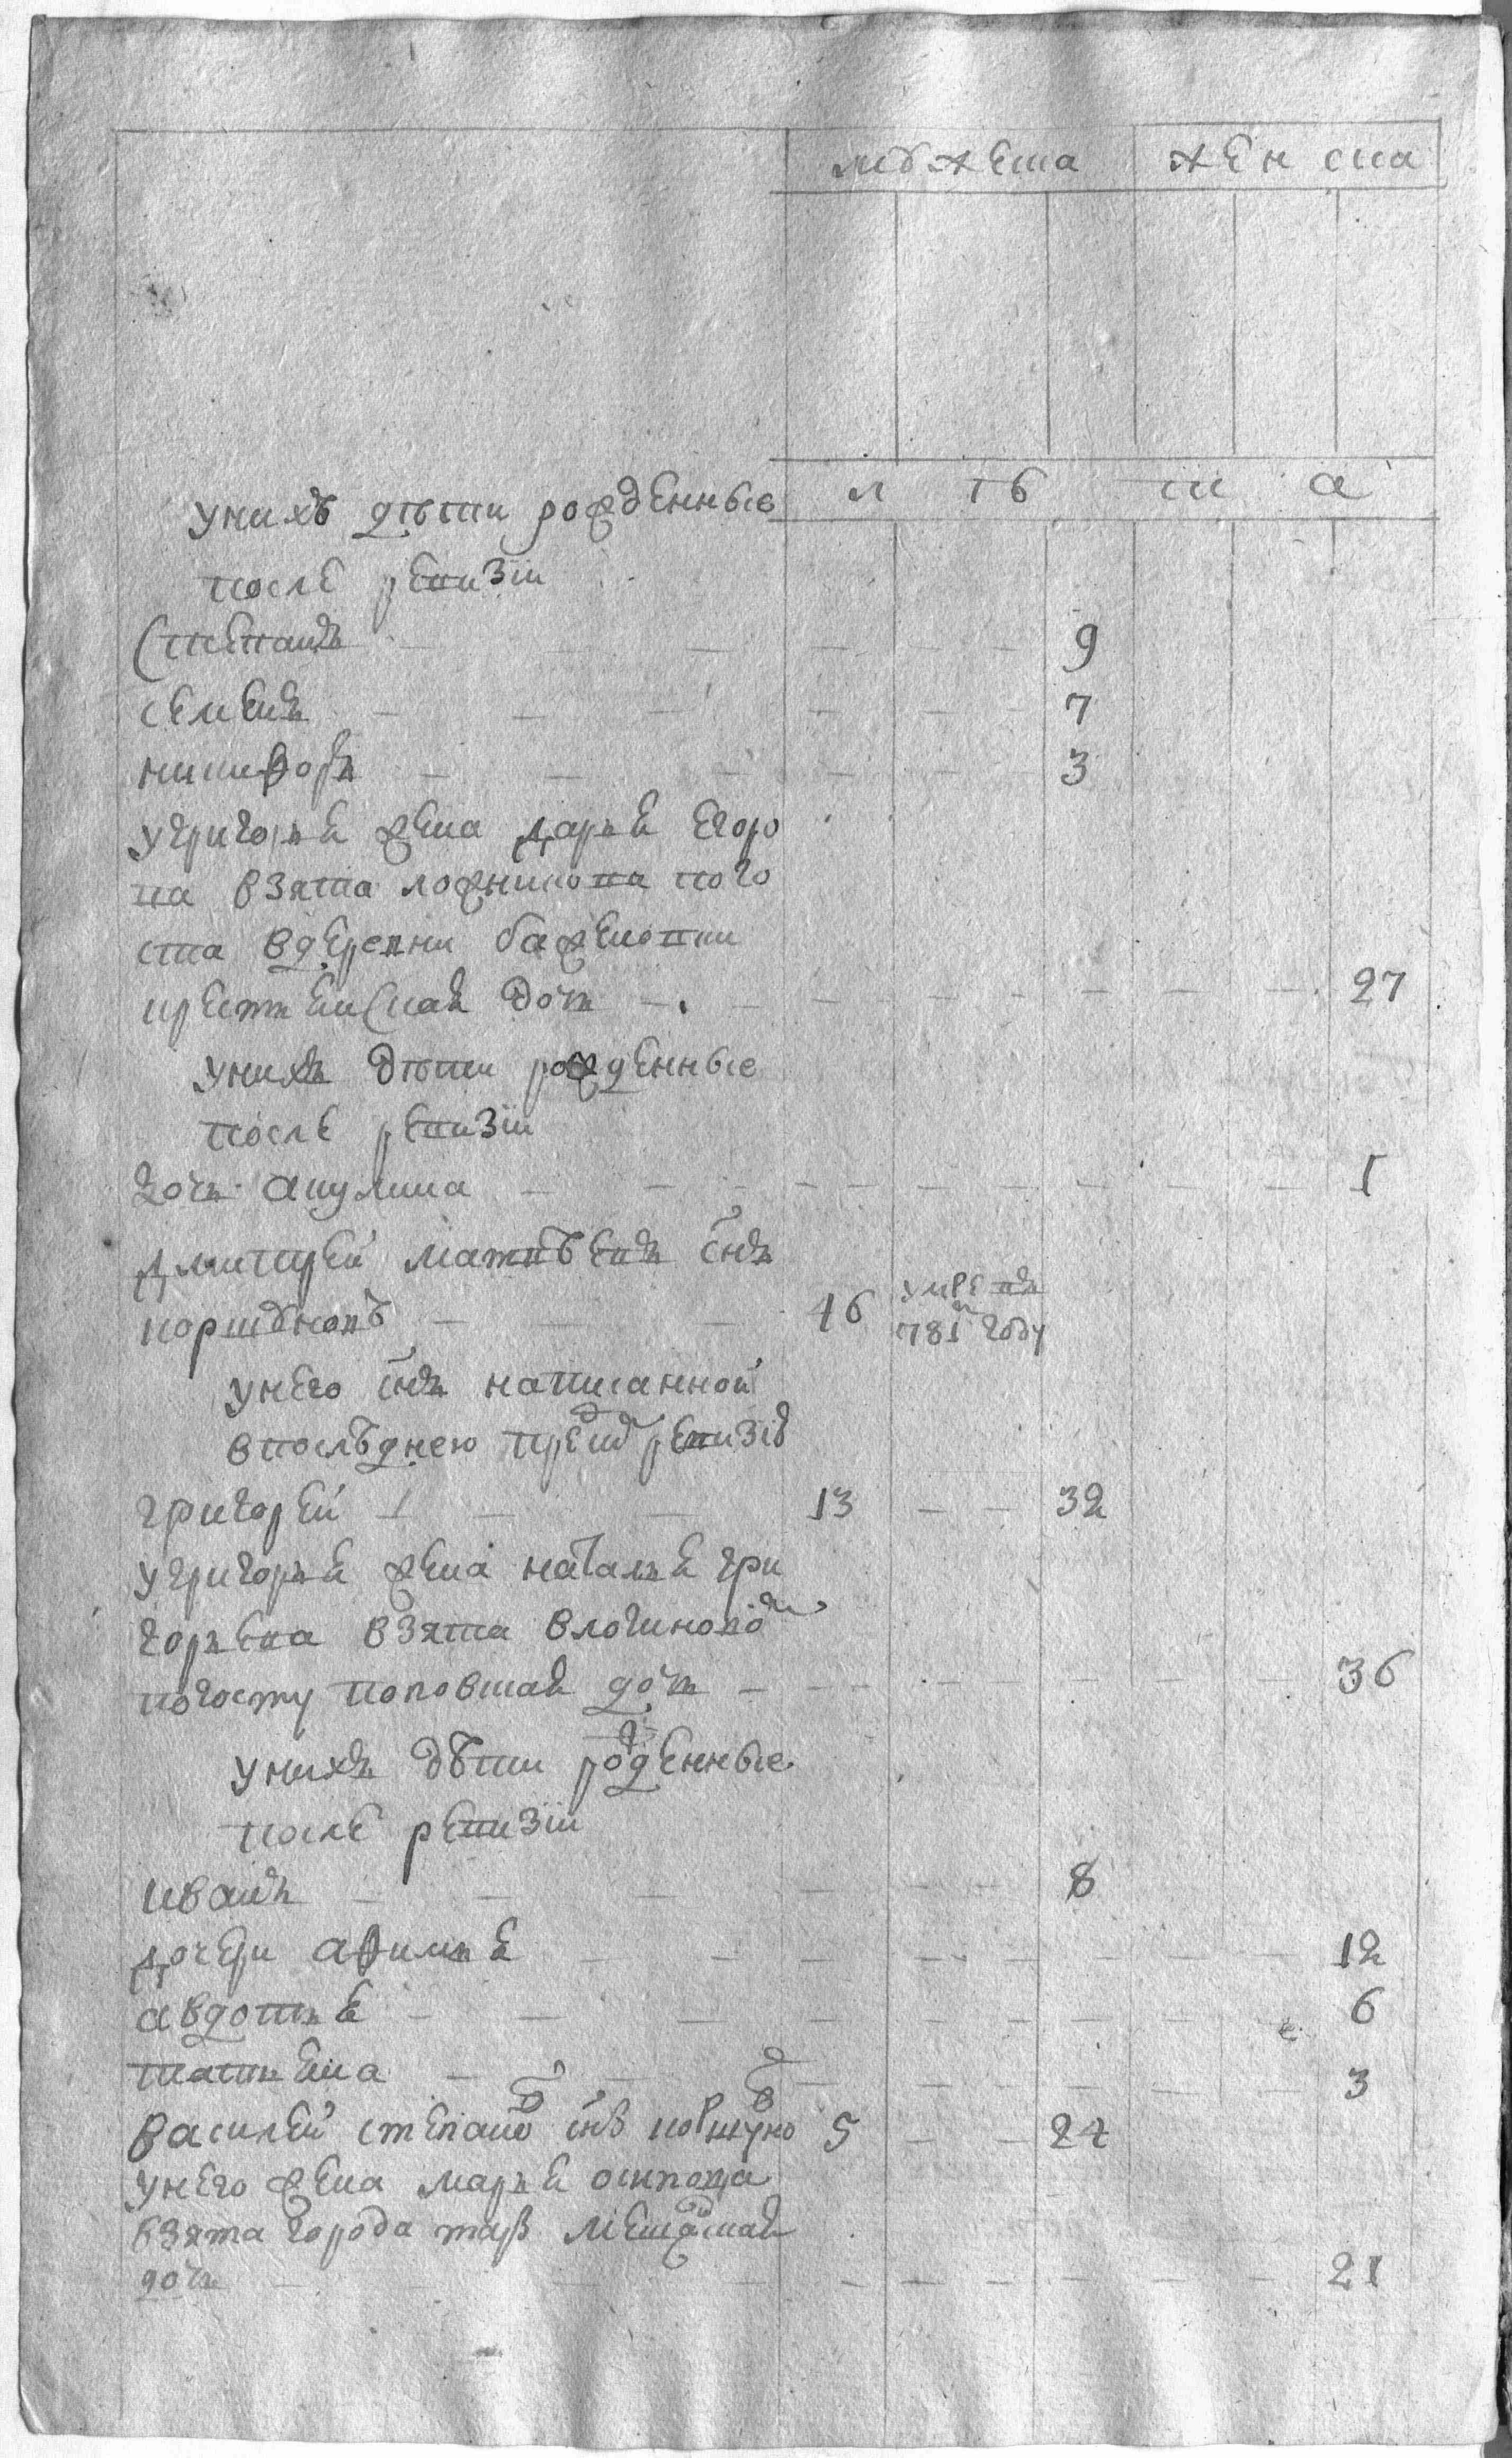 мужеска женска
л тъ ... та
У них дѣти рожденные
после ревизіи
Степанъ 9
Семенъ 7
никифоръ 3
У григорья жена дарья Егоро
ва взята ложникова пого
ста в деревни баженовки
крестьянская дочь 27
У нихъ дѣти рожденные
после ревизіи
Дочь акулина 1
Дмитрей матвѣевъ снъ
коршуновъ 46 умре въ
781 м году
У него снъ написанной
в последнею пред ревизіѣ
григорей 13 32
У григорья жена наталья гри
горьева взята в логиново
погосту поповская дочь 36
У нихъ дѣти рожденные
после ревизіи
иванъ 8
Дочери афимья 12
авдотья 6
татьяна 3
Василей степановъ снъ коршуно 5 24
У него жена марья осипова
взята города тары мещанская
дочь 21